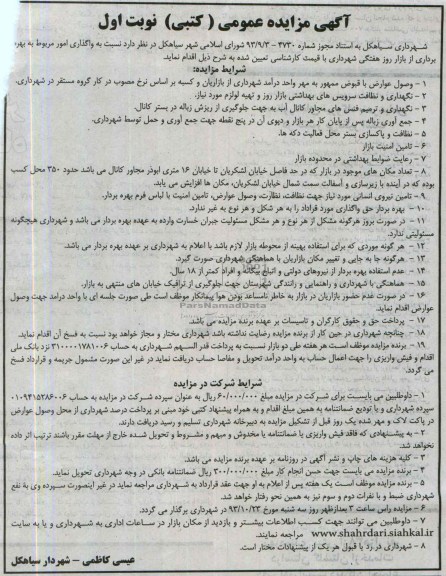 آگهی مزایده عمومی (کتبی) نوبت اول
شهرداری سیاهکل به استناد مجوز شماره ۳۷۳۰ - ۹۳/۹/۳ شورای اسلامی شهر سیاهکل در نظر دارد نسبت به واگذاری امور مربوط به بهره
برداری از بازار روز هفتگی شهرداری با قیمت کارشناسی تعیین شده به شرح ذیل اقدام نماید.
شرایط مزایده:
۱ - وصول عوارض با قبوض ممهور به مهر واحد درآمد شهرداری از بازاریان و کسبه بر اساس نرخ مصوب در کار گروه مستقر در شهرداری.
۲ - نگهداری و نظافت سرویس های بهداشتی بازار روز و تهیه لوازم مورد نیاز.
۳ - نگهداری و ترمیم فنس های مجاور کانال آب به جهت جلوگیری از ریزش زباله در بستر کانال.
۴ - جمع آوری زباله پس از پایان کار هر بازار و دپوی آن در پنج نقطه جهت جمع آوری و حمل توسط شهرداری.
۵ - نظافت و پاکسازی بستر محل فعالیت دکه ها.
۶ - تامین امنیت بازار
۷ - رعایت ضوابط بهداشتی در محدوده بازار
۸ - تعداد مکان های موجود در بازار که در حد فاصل خیابان لشکریان تا خیابان ۱۶ متری ابوذر مجاور کانال می باشد حدود ۳۵۰ محل کسب
بوده که در آینده با زیرسازی و آسفالت سمت شمال خیابان لشکریان، مکان ها افزایش می یابد.
۹ - تامین نیروی انسانی مورد نیاز جهت نظافت، نظارت، وصول عوارض، تامین امنیت با لباس فرم بهره بردار.
۱۰ - بهره بردار حق واگذاری مورد قراداد را به هر شکل و هر نوع به غیر ندارد.
۱۱ - در صورت بروز هرگونه مشکل از هر نوع و هر مشکل مسئولیت جبران خسارت وارده به عهده بهره بردار می باشد و شهرداری هیچگونه
مسئولیتی ندارد.
۱۲ - هر گونه موردی که برای استفاده بهینه از محوطه بازار لازم باشد با اعلام به شهرداری بر عهده بهره بردار می باشد.
۱۳ - هرگونه جا به جایی و تغییر مکان بازاریان با هماهنگی شهرداری صورت گیرد.
۱۴ - عدم استفاده بهره بردار از نیروهای دولتی و اتباع بیگانه و افراد کمتر از ۱۸ سال.
۱۵ - هماهنگی با شهرداری و راهنمایی و رانندگی شهرستان جهت جلوگیری از ترافیک خیابان های منتهی به بازار.
۱۶ - در صورت عدم حضور بازاریان در بازار به خاطر نامساعد بودن هوا پیمانکار موظف است طی صورت جلسه ای با واحد درآمد جهت وصول
عوارض اقدام نماید.
۱۷ - پرداخت حق و حقوق کارگران و تاسیسات بر عهده برنده مزایده می باشد.
۱۸ - چنانچه شهرداری در حین کار از برنده مزایده رضایت نداشته باشد شهرداری مختار و مجاز خواهد بود نسبت به فسخ آن اقدام نماید.
۱۹ - برنده مزایده موظف است هر هفته طی دو بازار نسبت به پرداخت قدر السهم شهرداری به حساب ۳۱۰۰۰۰۱۷۸۱۰۰۶ نزد بانک ملی
اقدام و فیش واریزی را جهت اعمال حساب به واحد درآمد تحویل و مفاصا حساب دریافت نماید در غیر این صورت مشمول جریمه و قراداد فسخ
می گردد.
شرایط شرکت در مزایده
۱ - داوطلبین می بایست برای شرکت در مزایده مبلغ ۶۰/۰۰۰/۰۰۰ ریال به عنوان سپرده شرکت در مزایده به حساب ۰۱۰۹۴۱۵۲۸۶۰۰۶
سپرده شهرداری و یا تودیع ضمانتنامه به همین مبلغ اقدام و به همراه پیشنهاد کتبی خود مبنی بر پرداخت درصد شهرداری از محل وصول عوارض
در پاکت لاک و مهر شده یک روز قبل از تشکیل مزایده به دبیرخانه شهرداری تسلیم و رسید دریافت دارند.
۲ - به پیشنهادی که فاقد فیش واریزی یا ضمانتنامه یا مخدوش و مبهم و مشروط و تحویل شده خارج از مهلت مقرر باشند ترتیب اثر داده
نخواهد شد.
۳ - کلیه هزینه های چاپ و نشر آگهی در روزنامه بر عهده برنده مزایده می باشد.
۴ - برنده مزایده می بایست جهت حسن انجام کار مبلغ ۳۰۰/۰۰۰/۰۰۰ ریال ضمانتنامه بانکی در وجه شهرداری تحویل نماید.
۵ - برنده مزایده موظف است یک هفته پس از اعلام به او جهت عقد قرارداد به شهرداری مراجعه نماید در غیر اینصورت سپرده وی به نفع
شهرداری ضبط و با نفرات دوم و سوم نیز به همین نحو رفتار خواهد شد.
۶ - مزایده راس ساعت ۳ بعدازظهر روز سه شنبه مورخ ۹۳/۱۰/۲۳ در شهرداری برگذار می گردد.
۷ - داوطلبین می توانند جهت کسب اطلاعات بیشتر و بازدید از مکان بازار در ساعات اداری به شهرداری و یا به سایت
www.shahrdari.siahkal.ir مراجعه نمایند.
۸ - شهرداری در رد یا قبول هر یک از پیشنهادات مختار است.
عیسی کاظمی - شهردار سیاهکل
ParsNamadData